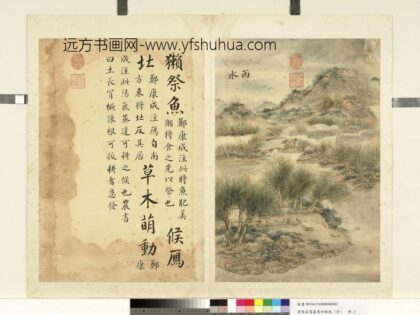 远方书画网-www.yfshuhua.com
雨水
獺祭魚 鄭康成注此時魚肥美
獺將食之先以祭也 候鴈
北 鄭康成注鴈自南
方來將北反其居 草木萌動 鄭康
成注此陽氣蒸達可耕之候也農書
曰土長冒橛陳根可拔耕者急發